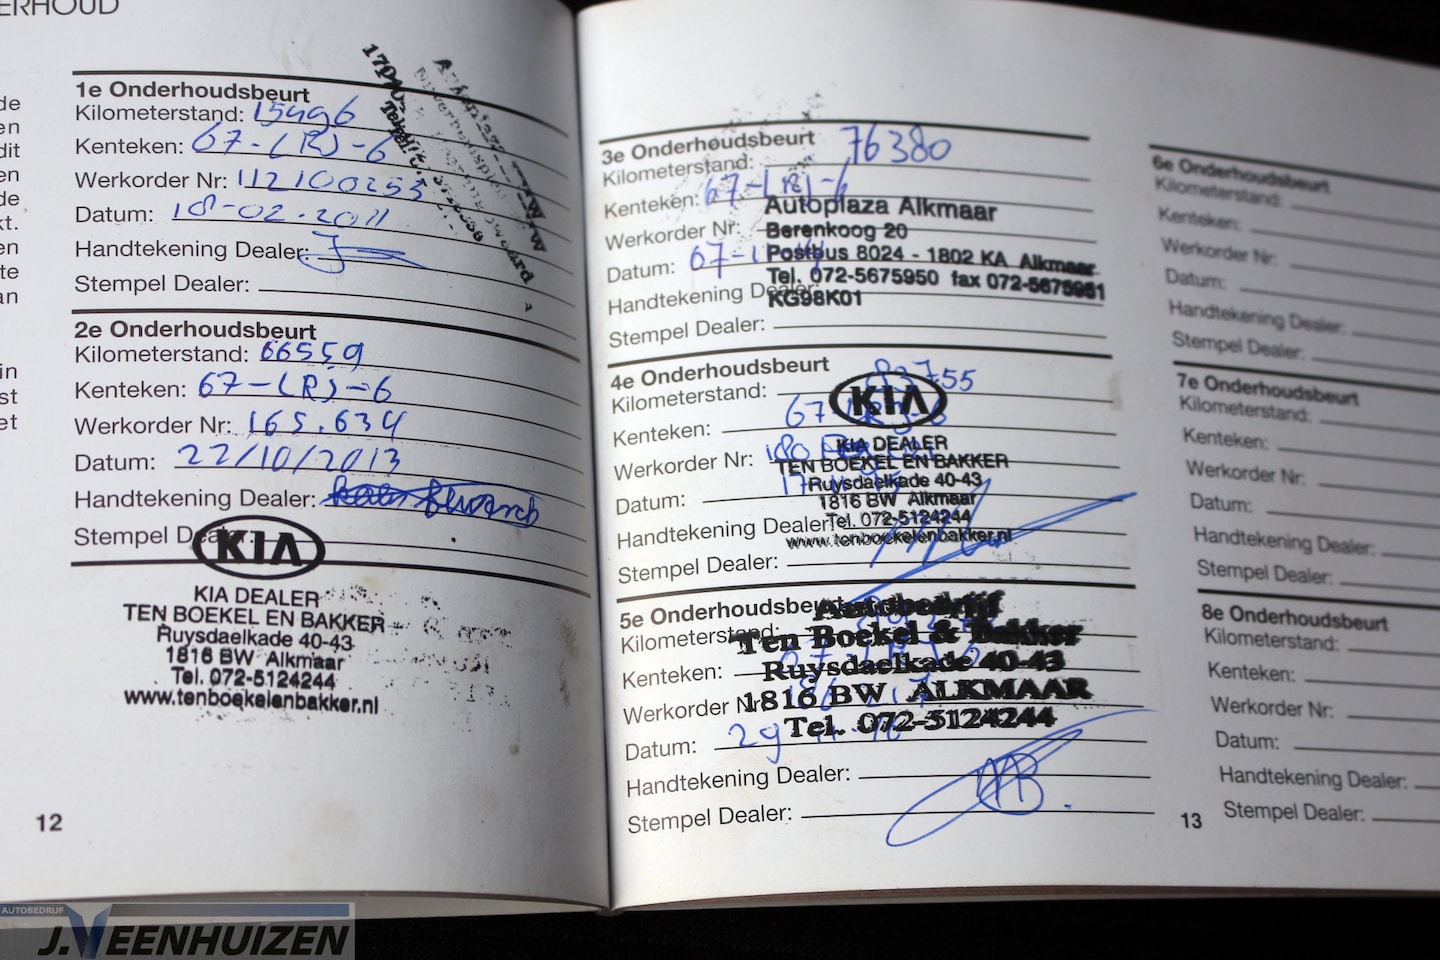 ERHOUD
de
en
dit
en
de
kt.
en
te
an
in
st
et
1e Onderhoudsbeurt
Kilometerstand: 15496
Kenteken: 67-LRJ-6
Werkorder Nr: 112100253
Datum: 18-02-2011
Handtekening Dealer:
Stempel Dealer:
2e Onderhoudsbeurt
Kilometerstand: 66559
Kenteken: 67-LRJ-6
Werkorder Nr: 165.634
Datum: 22/10/2013
Handtekening Dealer:
Stempel Dealer:
KIA
KIA DEALER
TEN BOEKEL EN BAKKER
Ruysdaelkade 40-43
1816 BW Alkmaar
Tel. 072-5124244
www.tenboekelenbakker.nl
12
3e Onderhoudsbeurt
Kilometerstand: 76380
Kenteken: 67-LRJ-6
Werkorder Nr:
Datum:
Handtekening Dealer:
Stempel Dealer:
Autoplaza Alkmaar
Berenkoog 20
Postbus 8024 - 1802 KA Alkmaar
Tel. 072-5675950 fax 072-5675951
KG98K01
4e Onderhoudsbeurt
Kilometerstand: 83755
Kenteken: 67
Werkorder Nr:
Datum:
Handtekening Dealer:
Stempel Dealer:
KIA
KIA DEALER
TEN BOEKEL EN BAKKER
Ruysdaelkade 40-43
1816 BW Alkmaar
Tel. 072-5124244
www.tenboekelenbakker.nl
5e Onderhoudsbeurt
Kilometerstand:
Kenteken:
Werkorder Nr:
Datum: 29
Handtekening Dealer:
Stempel Dealer:
Autobedrijf
Ten Boekel & Bakker
Ruysdaelkade 40-43
1816 BW ALKMAAR
Tel. 072-5124244
6e Onderhoudsbeurt
Kilometerstand:
Kenteken:
Werkorder Nr:
Datum:
Handtekening Dealer:
Stempel Dealer:
7e Onderhoudsbeurt
Kilometerstand:
Kenteken:
Werkorder Nr:
Datum:
Handtekening Dealer:
Stempel Dealer:
8e Onderhoudsbeurt
Kilometerstand:
Kenteken:
Werkorder Nr:
Datum:
Handtekening Dealer:
Stempel Dealer:
13
AUTOBEDRIJF
J.VEENHUIZEN